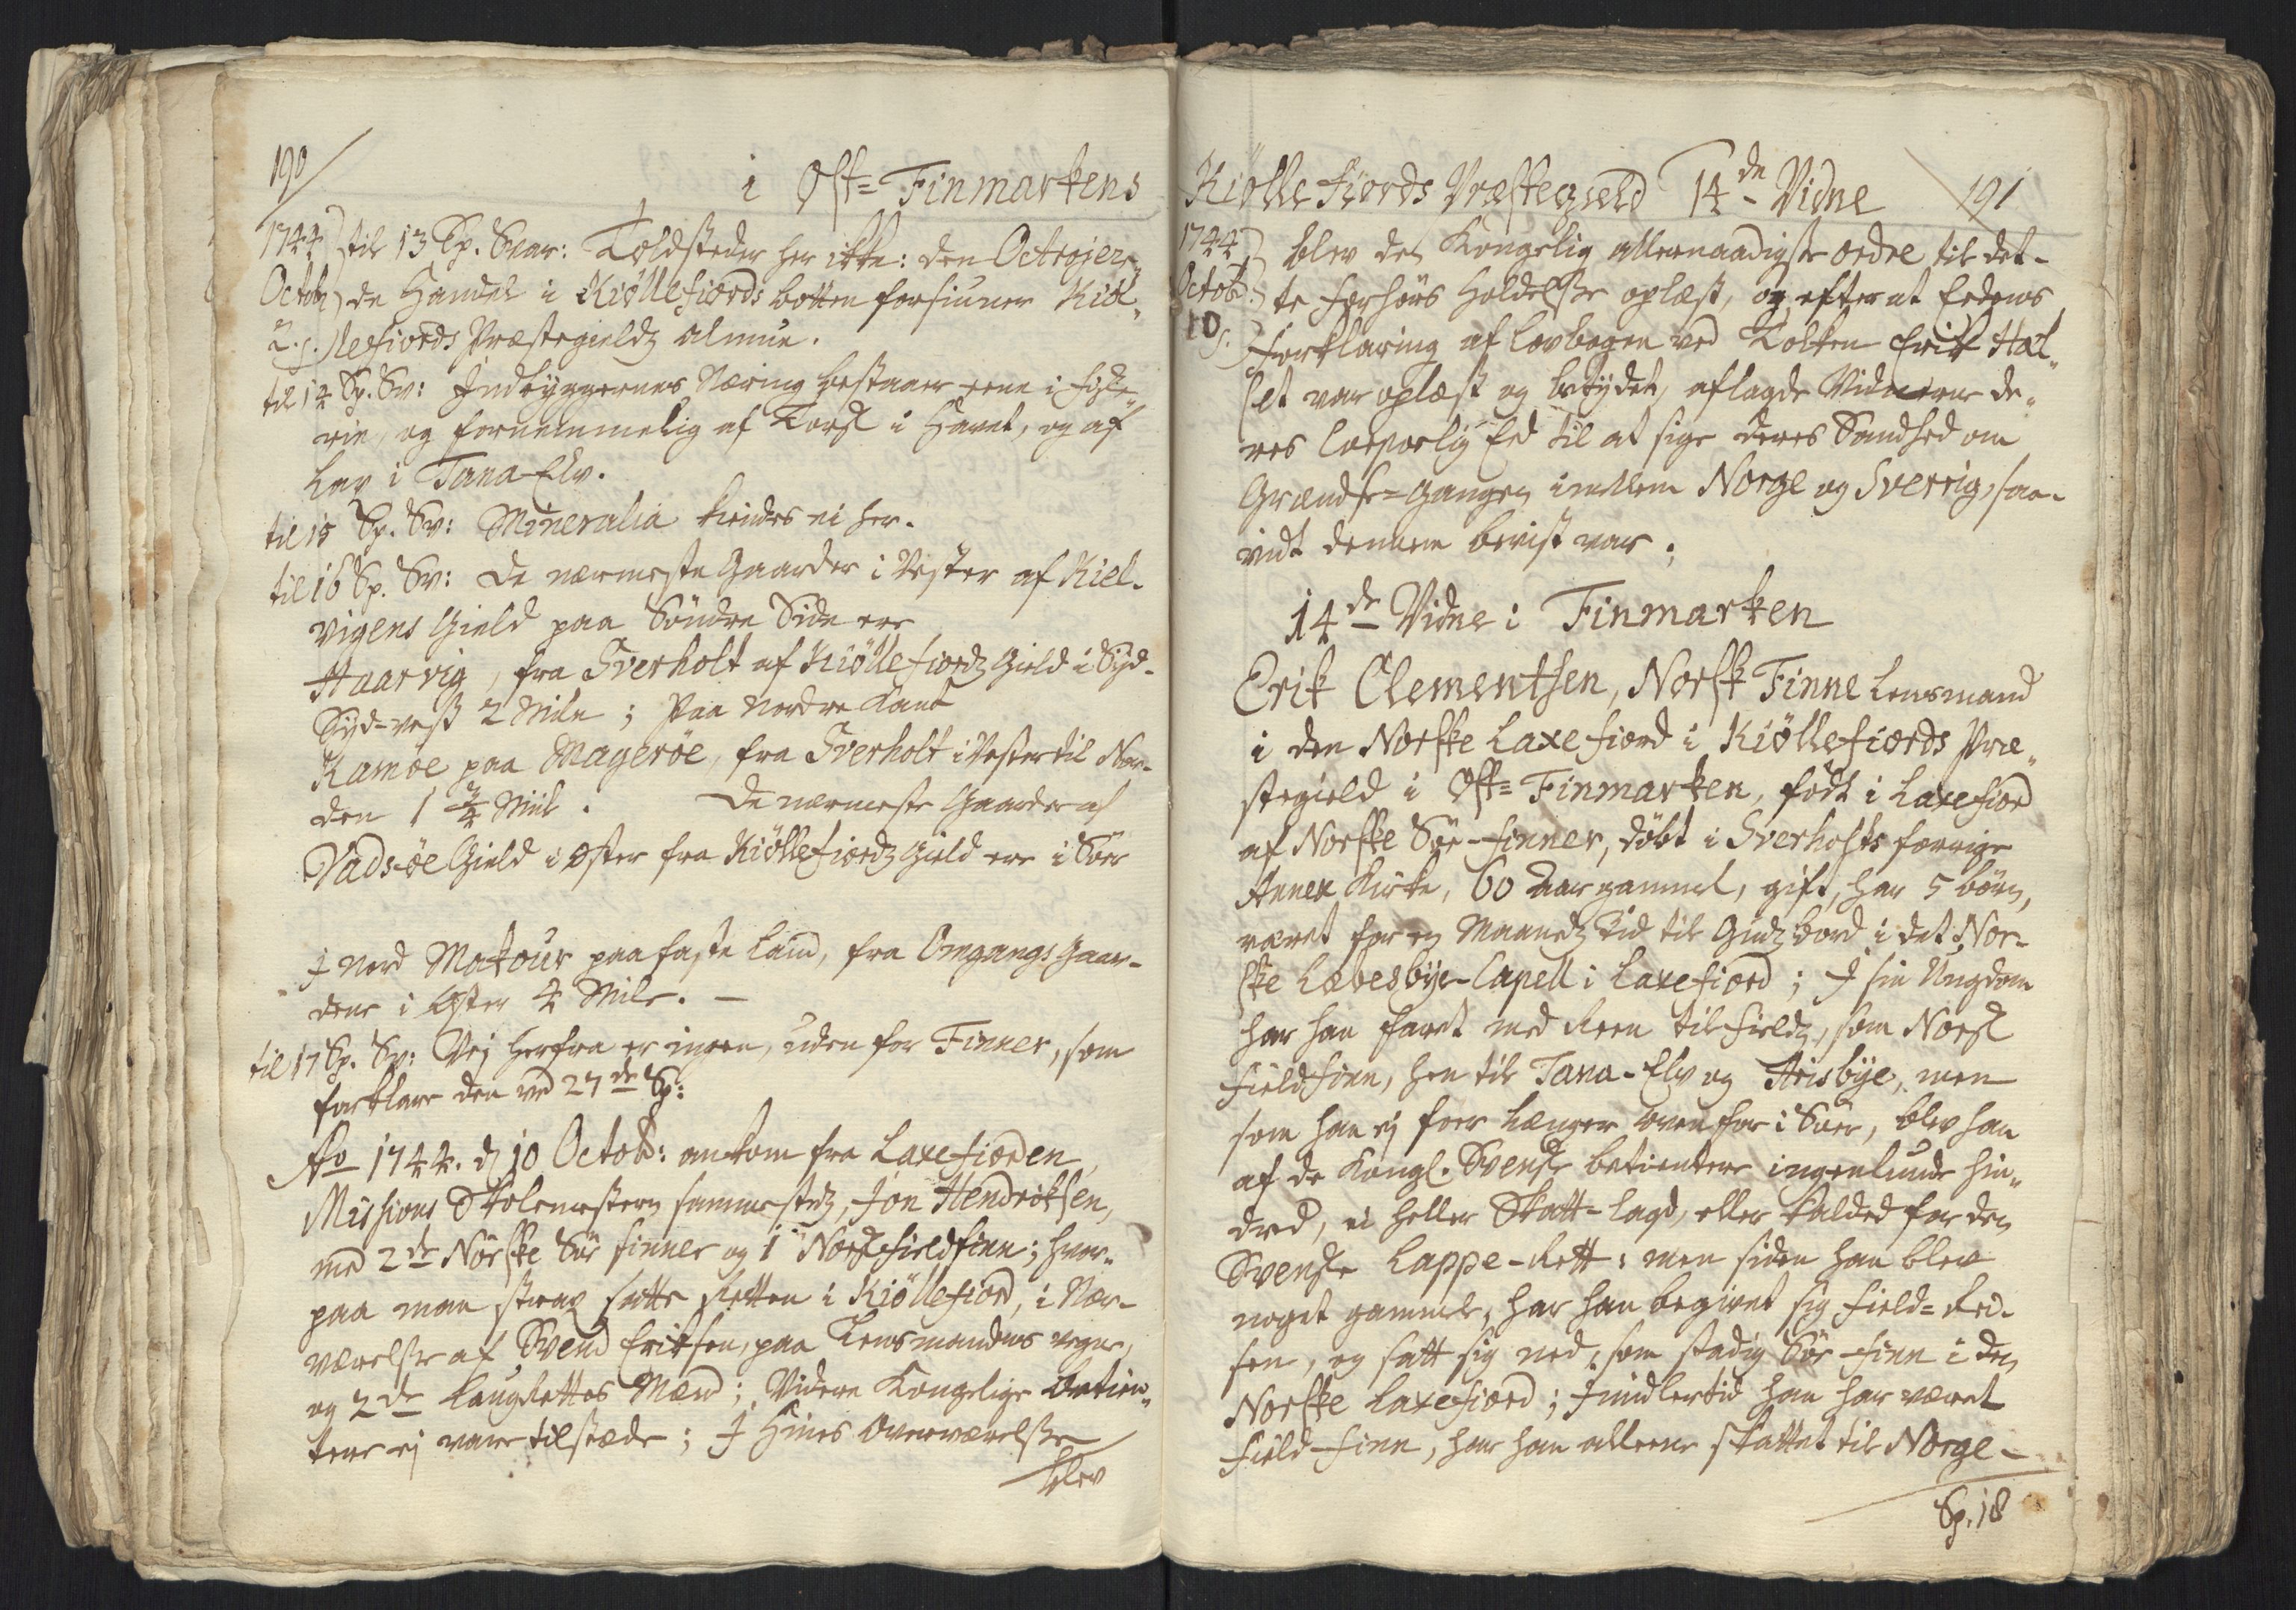 190
i Ost= Finmarkens
1744 til 13 Sp. Svar: Toldsteder her ikke: den Octrojer-
Octobr de Handel i Kiöllefiords botten forsiuner Kiöl-
2. lefiords Præstegieldz almue.
til 14 Sp. Sv: Indbyggernes Næring bestaaer eene i fiske-
rie, og fornemmelig af Torsk i Havet, og af
Lax i Tana-Elv.
til 15 Sp. Sv: Mineralia kiendes ei her.
til 16 Sp. Sv: De nærmeste Gaarder i Vester af Kiel-
vigens Gield paa Söndre Side ere
Haarvig, fra Sverholt af Kiöllefiordz Gield i Syd-
Syd-vest 2 Mile; Paa Nordre Kant
Kamöe paa Mageröe, fra Sverholt i Vester til Nor-
den 1 3/4 Miil. De nærmeste Gaarder af
Vadsöe Gield i Øster fra Kiöllefiordz Gield ere i Sör
I Nord Makour paa faste Land, fra Omgangs Gaar-
dene i Øster 4 Mile. —
til 17 Sp. Sv: Vej herfra er ingen, uden for Finner, som
forklare den ved 27de Sp:
Ao 1744. d 10 Octob: ankom fra Laxefiorden
Missions Skolemesteren sammestedz, Jon Hendriksen,
med 2de Norske Sör finner og 1 Norsk fieldfinn; hvor-
paa man strax satte Retten i Kiöllefiord, i Nær-
værelse af Svend Eriksen, paa Lensmandens vegne,
og 2de Laugrettes Mænd; Videre Kongelige betien-
tere ej vare tilstæde; I Hines Overværelse
blev
Kiölle fiords Præstegield 14de Vidne 191
1744 blev den Kongelig allernaadigste ordre til det-
Octob. te forhörs Holdelse oplæst, og efter at Eedens
10 forklaring af lovbogen ved Tolken Erik Hal-
set var oplæst og betydet, aflagde Vidnerne de-
res Corporlig Eed til at sige deres Sandhed om
Grændse=gangen imellem Norge og Sverrig, saa-
vidt dennem bevist var.
14de Vidne i Finmarken
Erik Clementsen, Norsk Finne Lensmand
i den Norske Laxefiord i Kiöllefiords Præ-
stegield i Ost= Finmarken, född i Laxefiord
af Norske Sör-finner, döbt i Sverholts forrige
Annex Kirke, 60 Aar gammel, gift, har 5 börn,
været for en Maanedz Tid til Gudz bord i det Nor-
ske Læbesbye-Capell i Laxefiord; I sin Ungdom
har han faret med Reen til fieldz, som Norsk
fieldfinn, hen til Tana-Elv og Arisbye, men
som han ej foer længer oven for i Sör, blev han
af de Kongl. Svenske betientere ingenlunde hin-
dred, ei heller Skatt-lagd, eller kalded for den
Svenske Lappe-Rett: men siden han blev
noget gammel, har han begivet sig field=Rei-
sen, og satt sig ned, som stadig Sör-finn i den
Norske Laxefiord; Imidlertid han har været
field-finn, har han alleene skattet til Norge-
Sp. 18